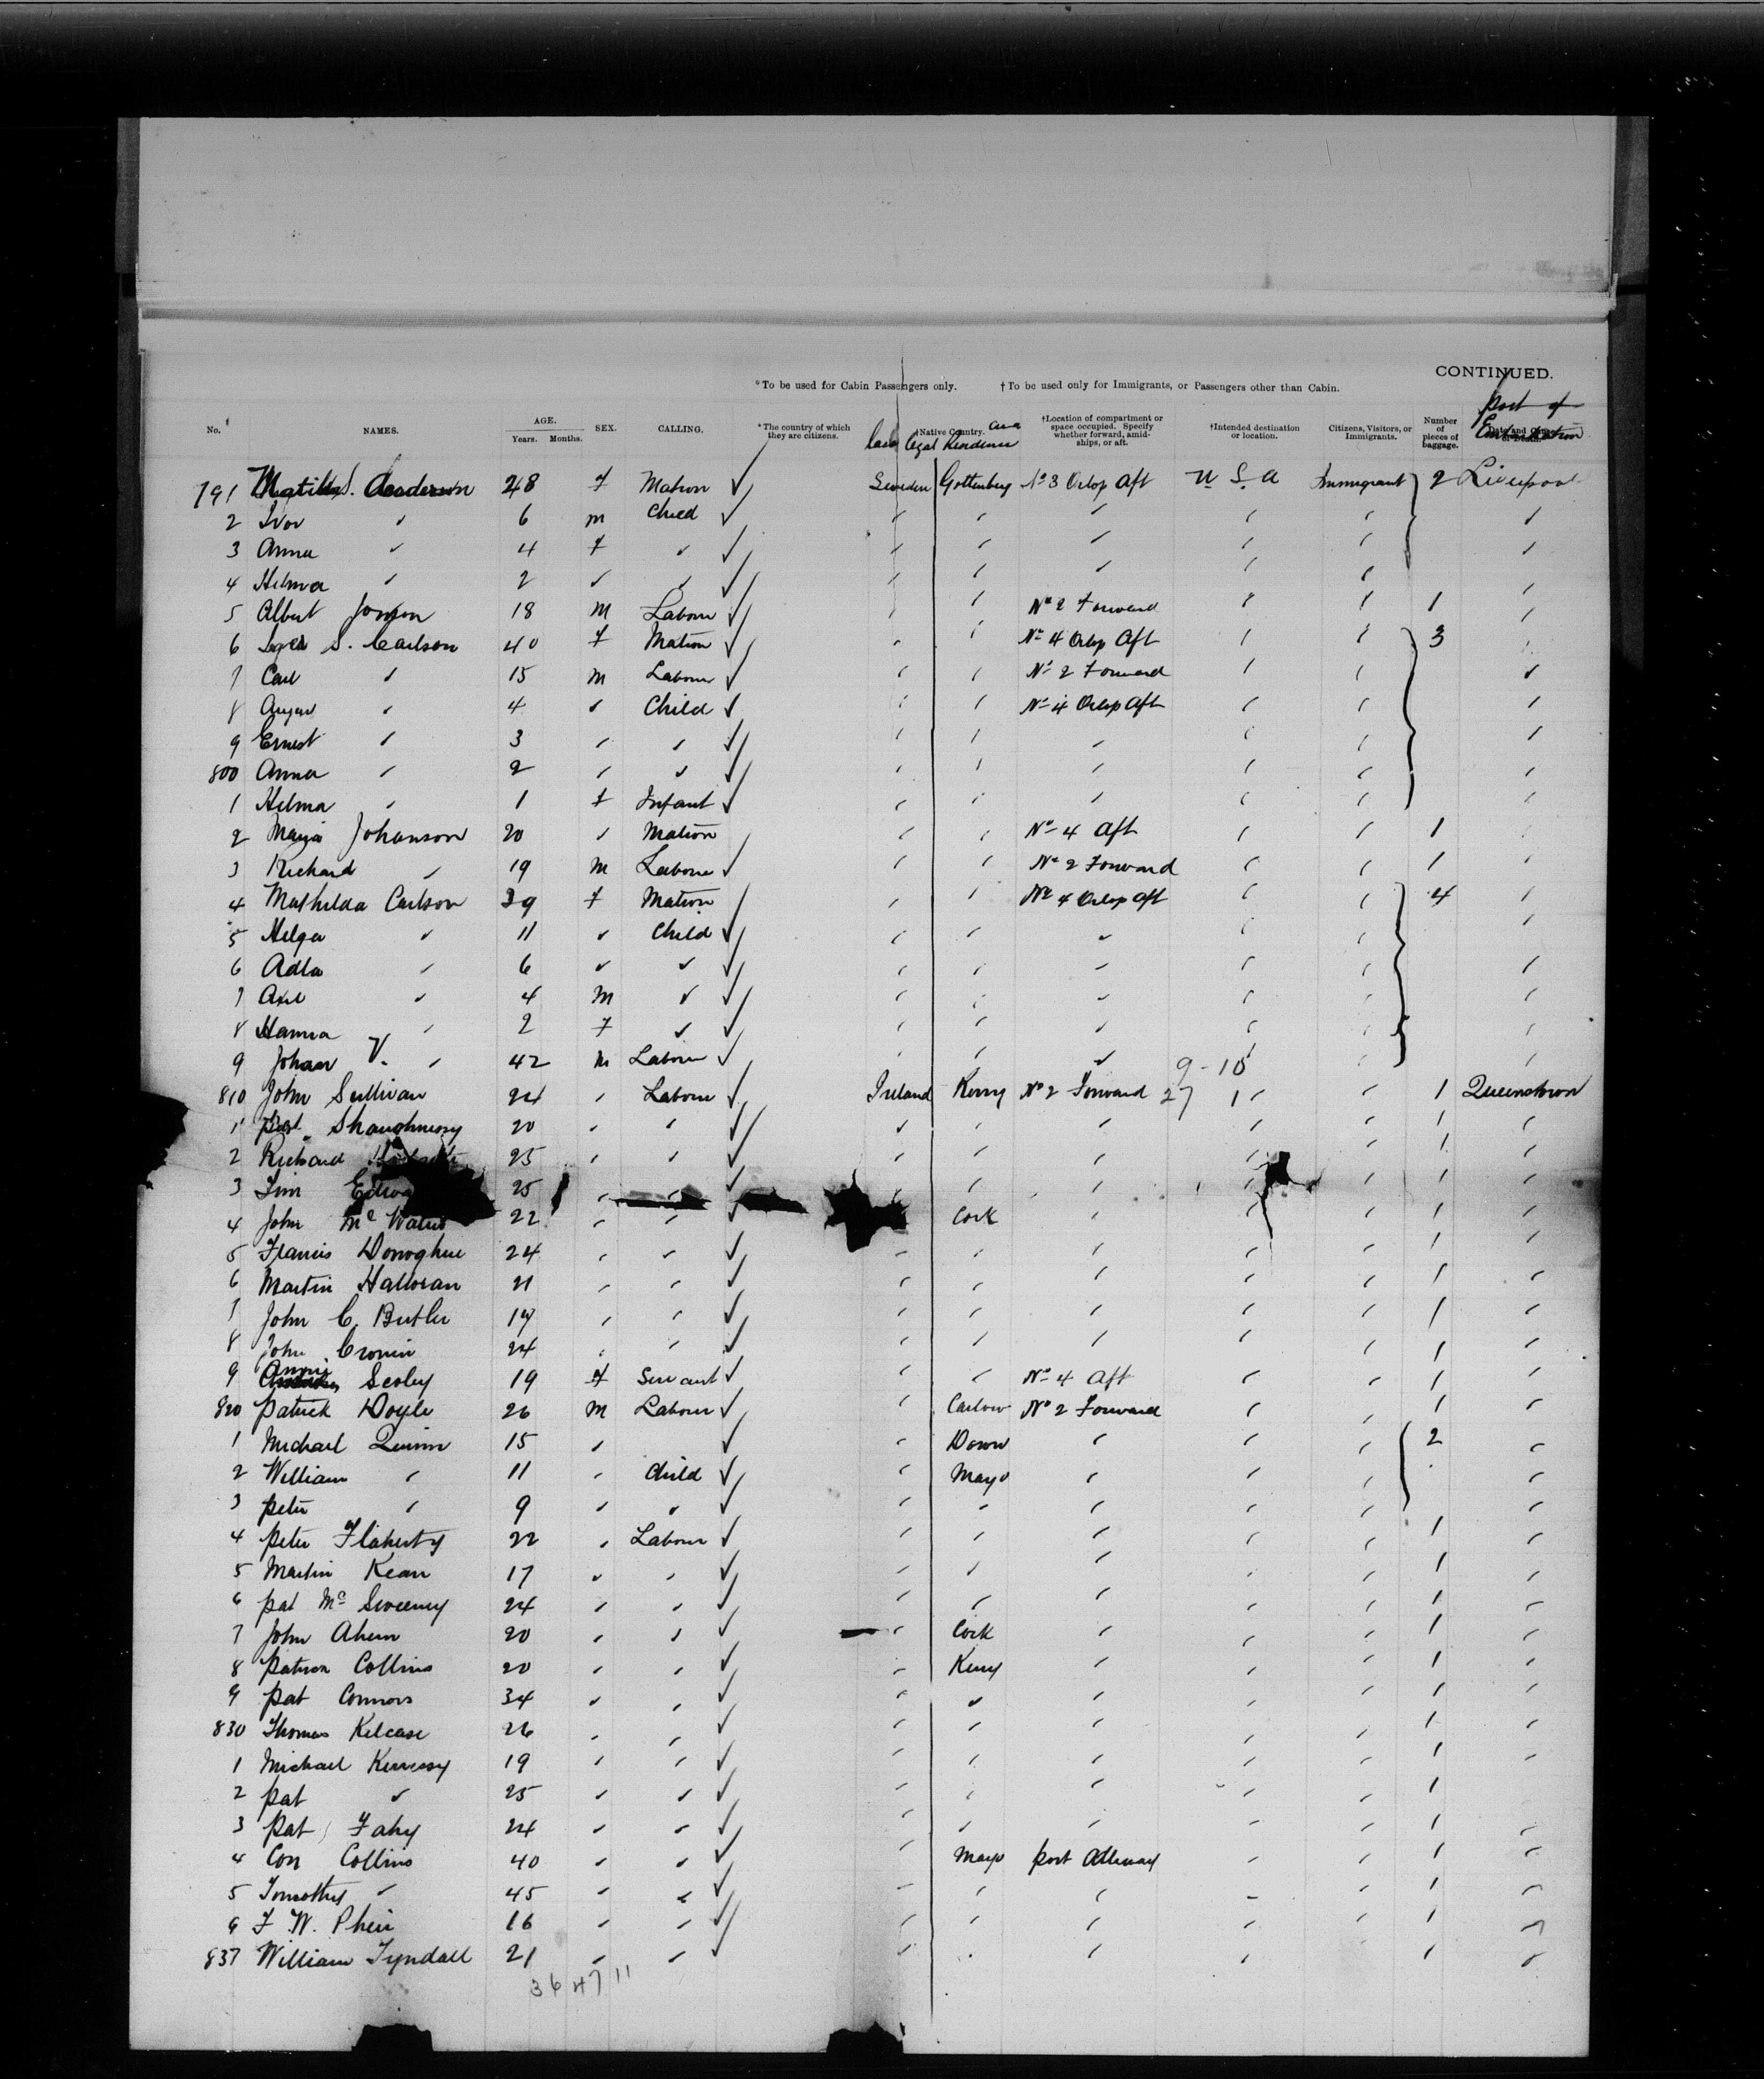 CONTINUED.
*To be used for Cabin Passengers only. †To be used only for Immigrants, or Passengers other than Cabin.
No. NAMES. AGE. Years. Months. SEX. CALLING. *The country of which they are citizens. †Native Country. Last legal Residence †Location of compartment or space occupied. Specify whether forward, amidships, or aft. †Intended destination or location. Citizens, Visitors, or Immigrants. Number of pieces of baggage. Port of
791 S. Anderson 28 F Matron ✓ Sweden Gottenberg No 3 Orlop Aft U.S.A Immigrant 2 Liverpool
2 Ivor " 6 M Child ✓ " " " " " "
3 Anna " 4 F " ✓ " " " " " "
4 Hilma " 2 " " ✓ " " " " " "
5 Albert 18 M Labour ✓ " " No 2 Forward " " 1 "
6 S. Carlson 40 F Matron ✓ " " No 4 Orlop Aft " " 3 "
7 Carl " 15 M Labour ✓ " " No 2 Forward " " "
8 " 4 " Child ✓ " " No 4 Orlop Aft " "
9 Ernest " 3 " " ✓ " " " " " "
800 Anna " 2 " " ✓ " " " " " "
1 Hilma " 1 F Infant ✓ " " " " " "
2 Johanson 20 " Matron " " No 4 Aft " " 1 "
3 Richard " 19 M Labour ✓ " " No 2 Forward " " 1 "
4 Mathilda Carlson 39 F Matron " " No 4 Orlop Aft " " 4 "
5 Helga " 11 " Child ✓ " " " " " "
6 Adla " 6 " " ✓ " " " " " "
7 Axel " 4 M " ✓ " " " " " "
8 Hanna " 2 F " ✓ " " " " " "
9 Johan V. " 42 M Labour ✓ " " " " "
9-10
810 John Sullivan 24 " Labour ✓ Ireland Kerry No 2 Forward 27 1 " " 1 Queenstown
1 Pat. Shaughnessy 20 " " ✓ " " " " " 1 "
2 Richard 25 " " ✓ " " " " " 1 "
3 25 " " ✓ " " " " " 1 "
4 John Mc 22 " " ✓ Cork " " " 1 "
5 Francis Donoghue 24 " " ✓ " " " " " 1 "
6 Martin Halloran 21 " " ✓ " " " " " 1 "
7 John C. Butler 19 " " ✓ " " " " " 1 "
8 John Cronin 24 " " ✓ " " " " " 1 "
9 Annie 19 F Servant ✓ " " No 4 Aft " " 1 "
820 Patrick Doyle 26 M Labour ✓ " Carlow No 2 Forward " " 1 "
1 Michael Quinn 15 " ✓ " Down " " " 2 "
2 William " 11 " Child ✓ " Mayo " " " "
3 Peter " 9 " " ✓ " " " " " "
4 Peter Flaherty 22 " Labour ✓ " " " " " 1 "
5 Martin Kean 17 " " ✓ " " " " " 1 "
6 Pat Mc Sweeney 24 " " ✓ " " " " " 1 "
7 John Ahern 20 " " ✓ " Cork " " " 1 "
8 Collins 20 " " ✓ " Kerry " " " 1 "
9 Pat Connors 34 " " ✓ " " " " " 1 "
830 Thomas 26 " " ✓ " " " " " 1 "
1 Michael 19 " " ✓ " " " " " 1 "
2 Pat " 25 " " ✓ " " " " " 1
3 Pat Fahy 24 " " ✓ " " " " " 1 "
4 Con Collins 40 " " ✓ " Mayo " " 1 "
5 Timothy " 45 " " ✓ " " " " " 1 "
6 F W. 16 " " ✓ " " " " " 1 "
837 William Tyndall 21 " " ✓ " " " " 1 "
36 47 11